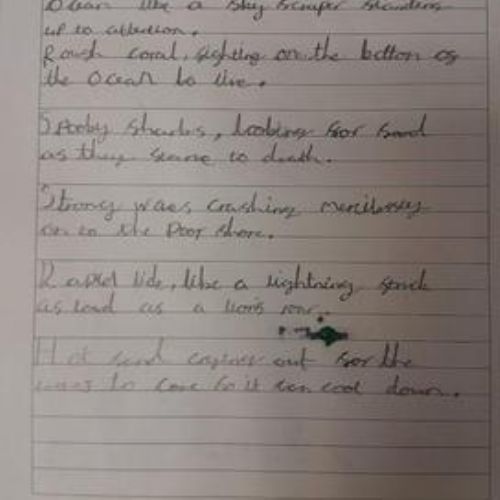 Ocean like a sky scraper standing
up to attention.
Rough coral, fighting on the bottom of
the ocean to live.
Spooky sharks, looking for food
as they starve to death.
Strong waves crashing mercilessly
on to the poor shore.
Rapid tide, like a lightning struck
as loud as a lions roar.
Hot sand crying out for the
waves to come so it can cool down.